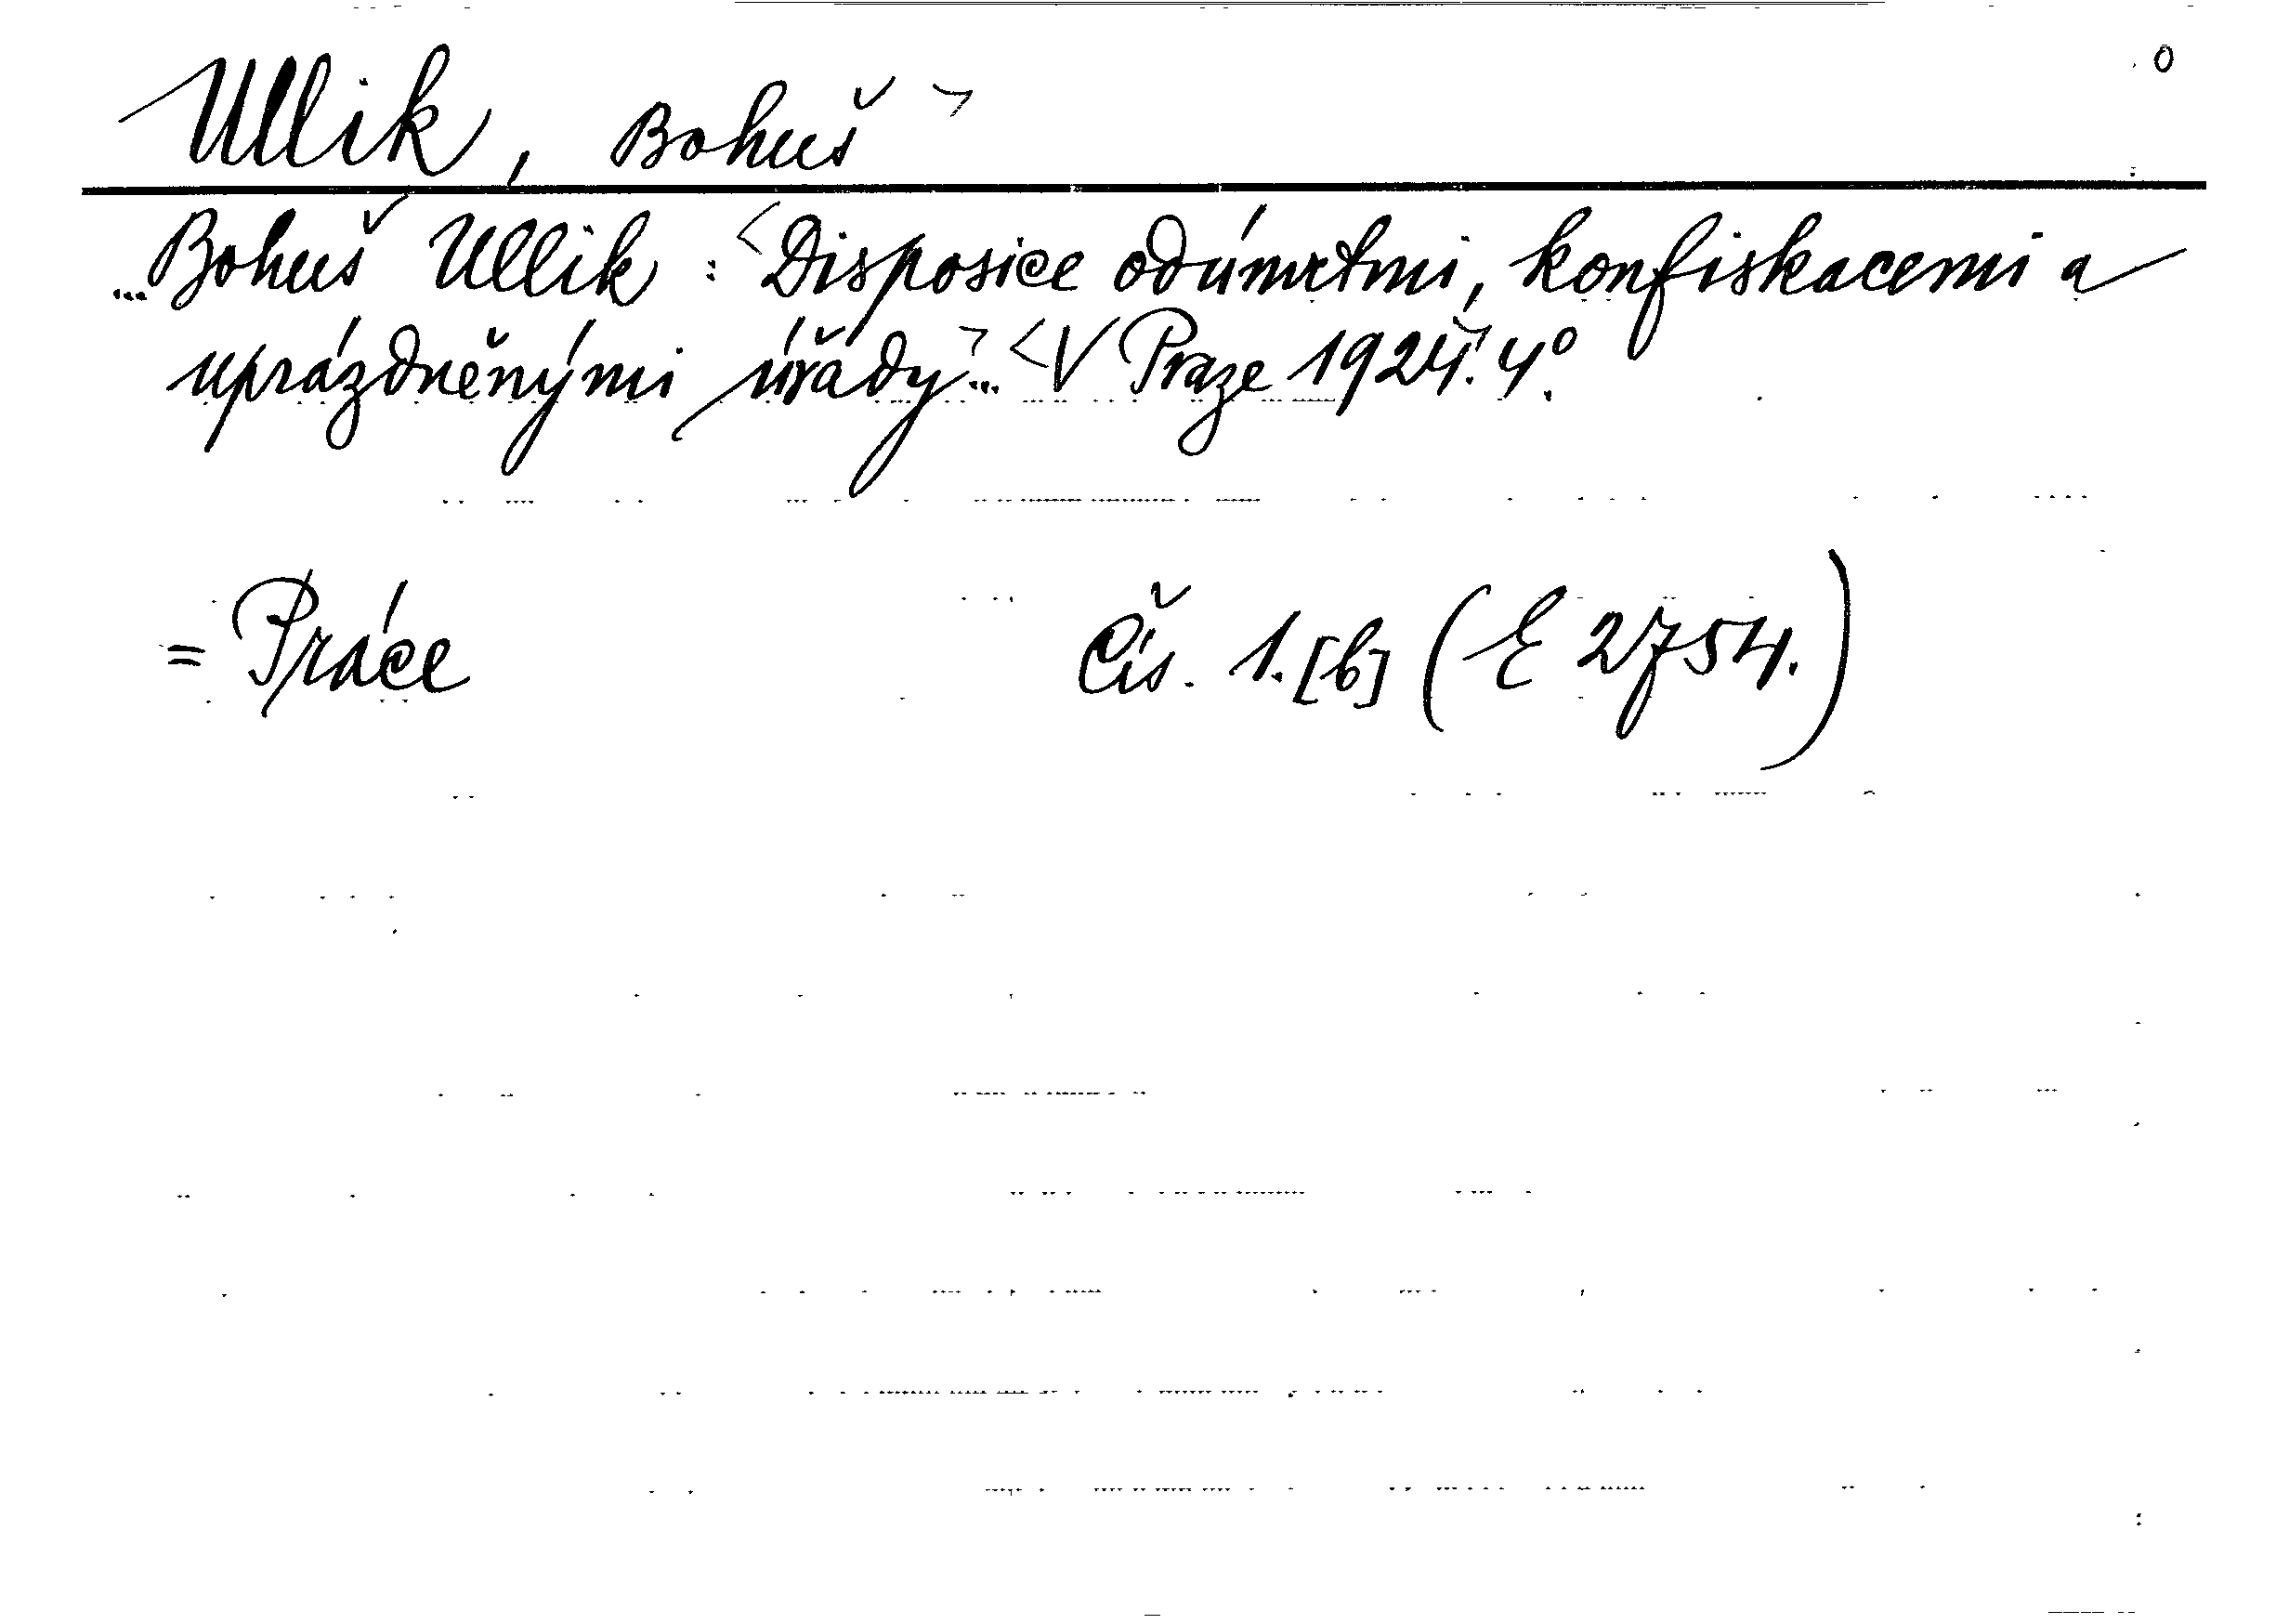 o
Ullik, Bohuš >
... Bohuš Ullik : <Disposice odúmrtmi, konfiskacemi a
uprázdněnými úřady> ... <V Praze 1924>. 4°.
= Práce Čís. 1. [b] (E 2754.)